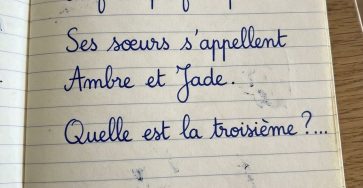 Ses sœurs s'appellent
Ambre et Jade.
Quelle est la troisième ?...